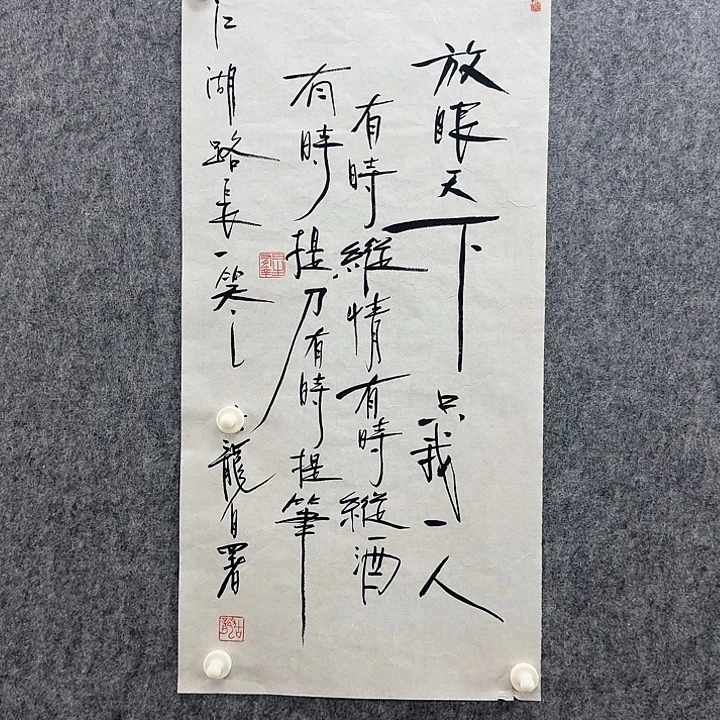 放眼天下只我一人
有時縱情有時縱酒
有時提刀有時提筆
江湖路長一笑之
龍自署